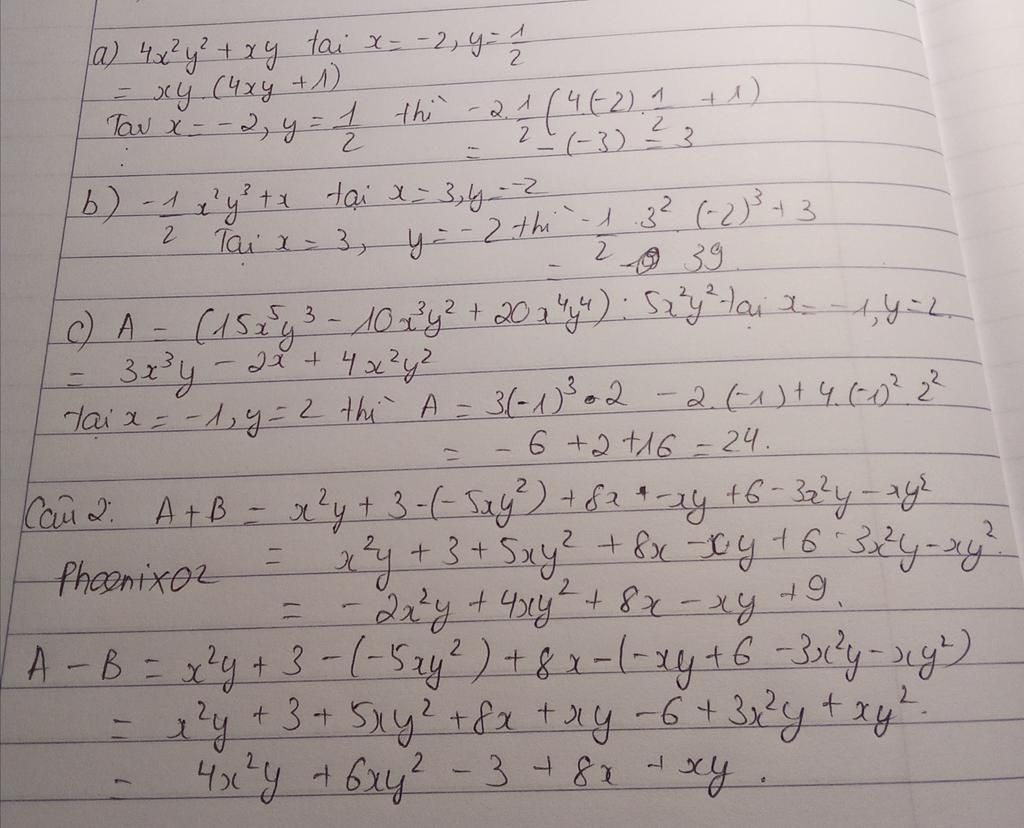 a) 4x²y² + xy tại x = -2, y = 1/2
= xy (4xy + 1)
Tại x = -2, y = 1/2 thì -2.1/2 (4(-2).1/2 + 1)
= -(-3) = 3
b) -1/2 x²y³ + x tại x = 3, y = -2
Tại x = 3, y = -2 thì -1/2 . 3² . (-2)³ + 3
= 39
c) A = (15x⁵y³ - 10x³y² + 20x⁴y⁴) : 5x²y² tại x = -1, y = 2.
= 3x³y - 2x + 4x²y²
tại x = -1, y = 2 thì A = 3(-1)³.2 - 2.(-1) + 4.(-1)².2²
= -6 + 2 + 16 = 24.
Câu 2: A + B = x²y + 3 - (-5xy²) + 8x + -xy + 6 - 3x²y - xy²
= x²y + 3 + 5xy² + 8x - xy + 6 - 3x²y - xy².
Phoenix02
= -2x²y + 4xy² + 8x - xy + 9.
A - B = x²y + 3 - (-5xy²) + 8x - (-xy + 6 - 3x²y - xy²)
= x²y + 3 + 5xy² + 8x + xy - 6 + 3x²y + xy².
= 4x²y + 6xy² - 3 + 8x + xy.